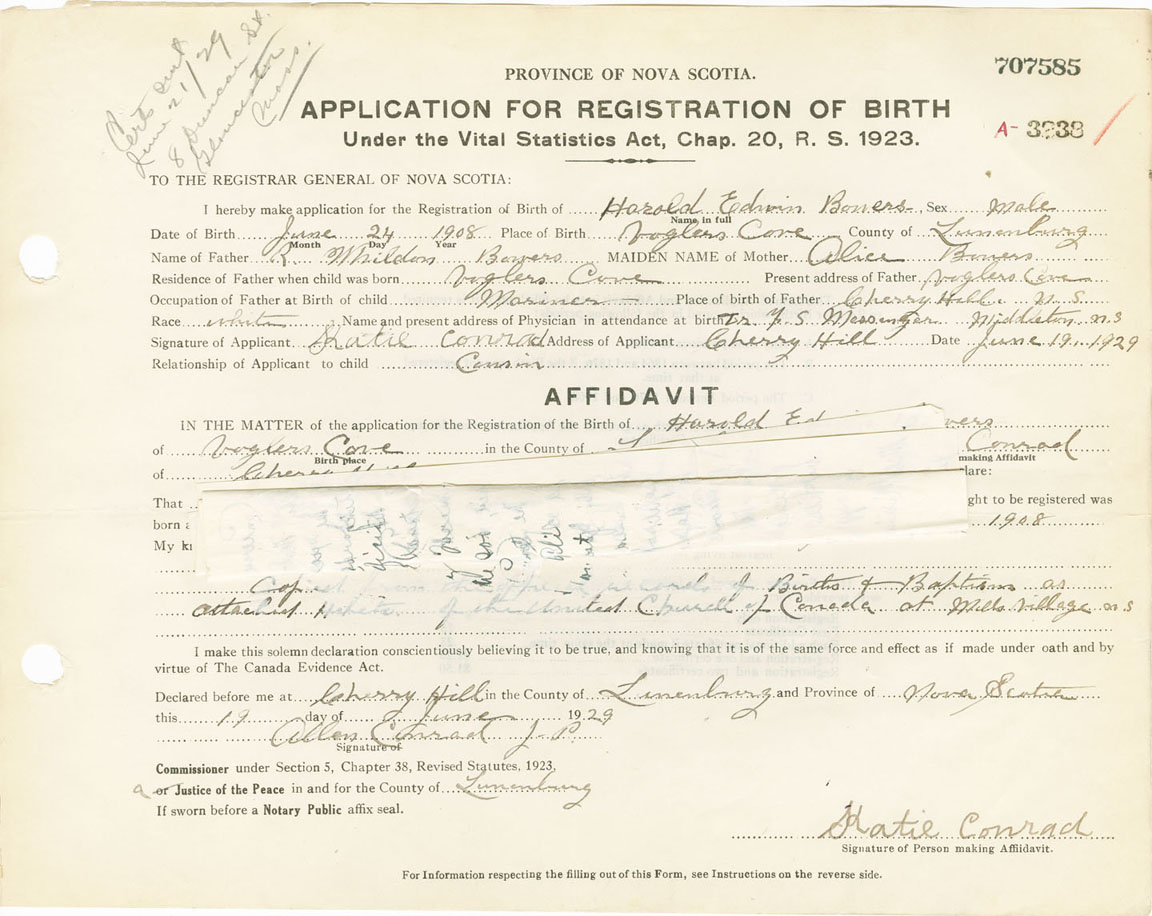 Certs sent
June 21/29
8 Duncan St.
Gloucester
Mass.
707585
PROVINCE OF NOVA SCOTIA.
APPLICATION FOR REGISTRATION OF BIRTH
Under the Vital Statistics Act, Chap. 20, R. S. 1923.
A- 3838
TO THE REGISTRAR GENERAL OF NOVA SCOTIA:
I hereby make application for the Registration of Birth of Harold Edwin Bowers, Sex Male
Name in full
Date of Birth June 24 1908 Place of Birth Voglers Cove County of Lunenburg
Month Day Year
Name of Father R. Whildon Bowers MAIDEN NAME of Mother Alice Bowers
Residence of Father when child was born Voglers Cove Present address of Father Voglers Cove
Occupation of Father at Birth of child Mariner Place of birth of Father Cherry Hill. N. S.
Race white Name and present address of Physician in attendance at birth Dr F. S. Messenger Middleton n.s
Signature of Applicant Katie Conrad Address of Applicant Cherry Hill Date June 19 1929
Relationship of Applicant to child Cousin
AFFIDAVIT
IN THE MATTER of the application for the Registration of the Birth of Harold Ed wers
of Voglers Cove in the County of Conrad
Birth place making Affidavit
of lare:
That ght to be registered was
born 1908
My
Copied from the records of Births & Baptism as
attached of the United Church of Canada at Mills Village n.s
I make this solemn declaration conscientiously believing it to be true, and knowing that it is of the same force and effect as if made under oath and by
virtue of The Canada Evidence Act.
Declared before me at Cherry Hill in the County of Lunenburg and Province of Nova Scotia
this 19 day of June 1929
Allen Conrad J. P.
Signature of
Commissioner under Section 5, Chapter 38, Revised Statutes, 1923,
a or Justice of the Peace in and for the County of Lunenburg
If sworn before a Notary Public affix seal.
Katie Conrad
Signature of Person making Affidavit.
For Information respecting the filling out of this Form, see Instructions on the reverse side.